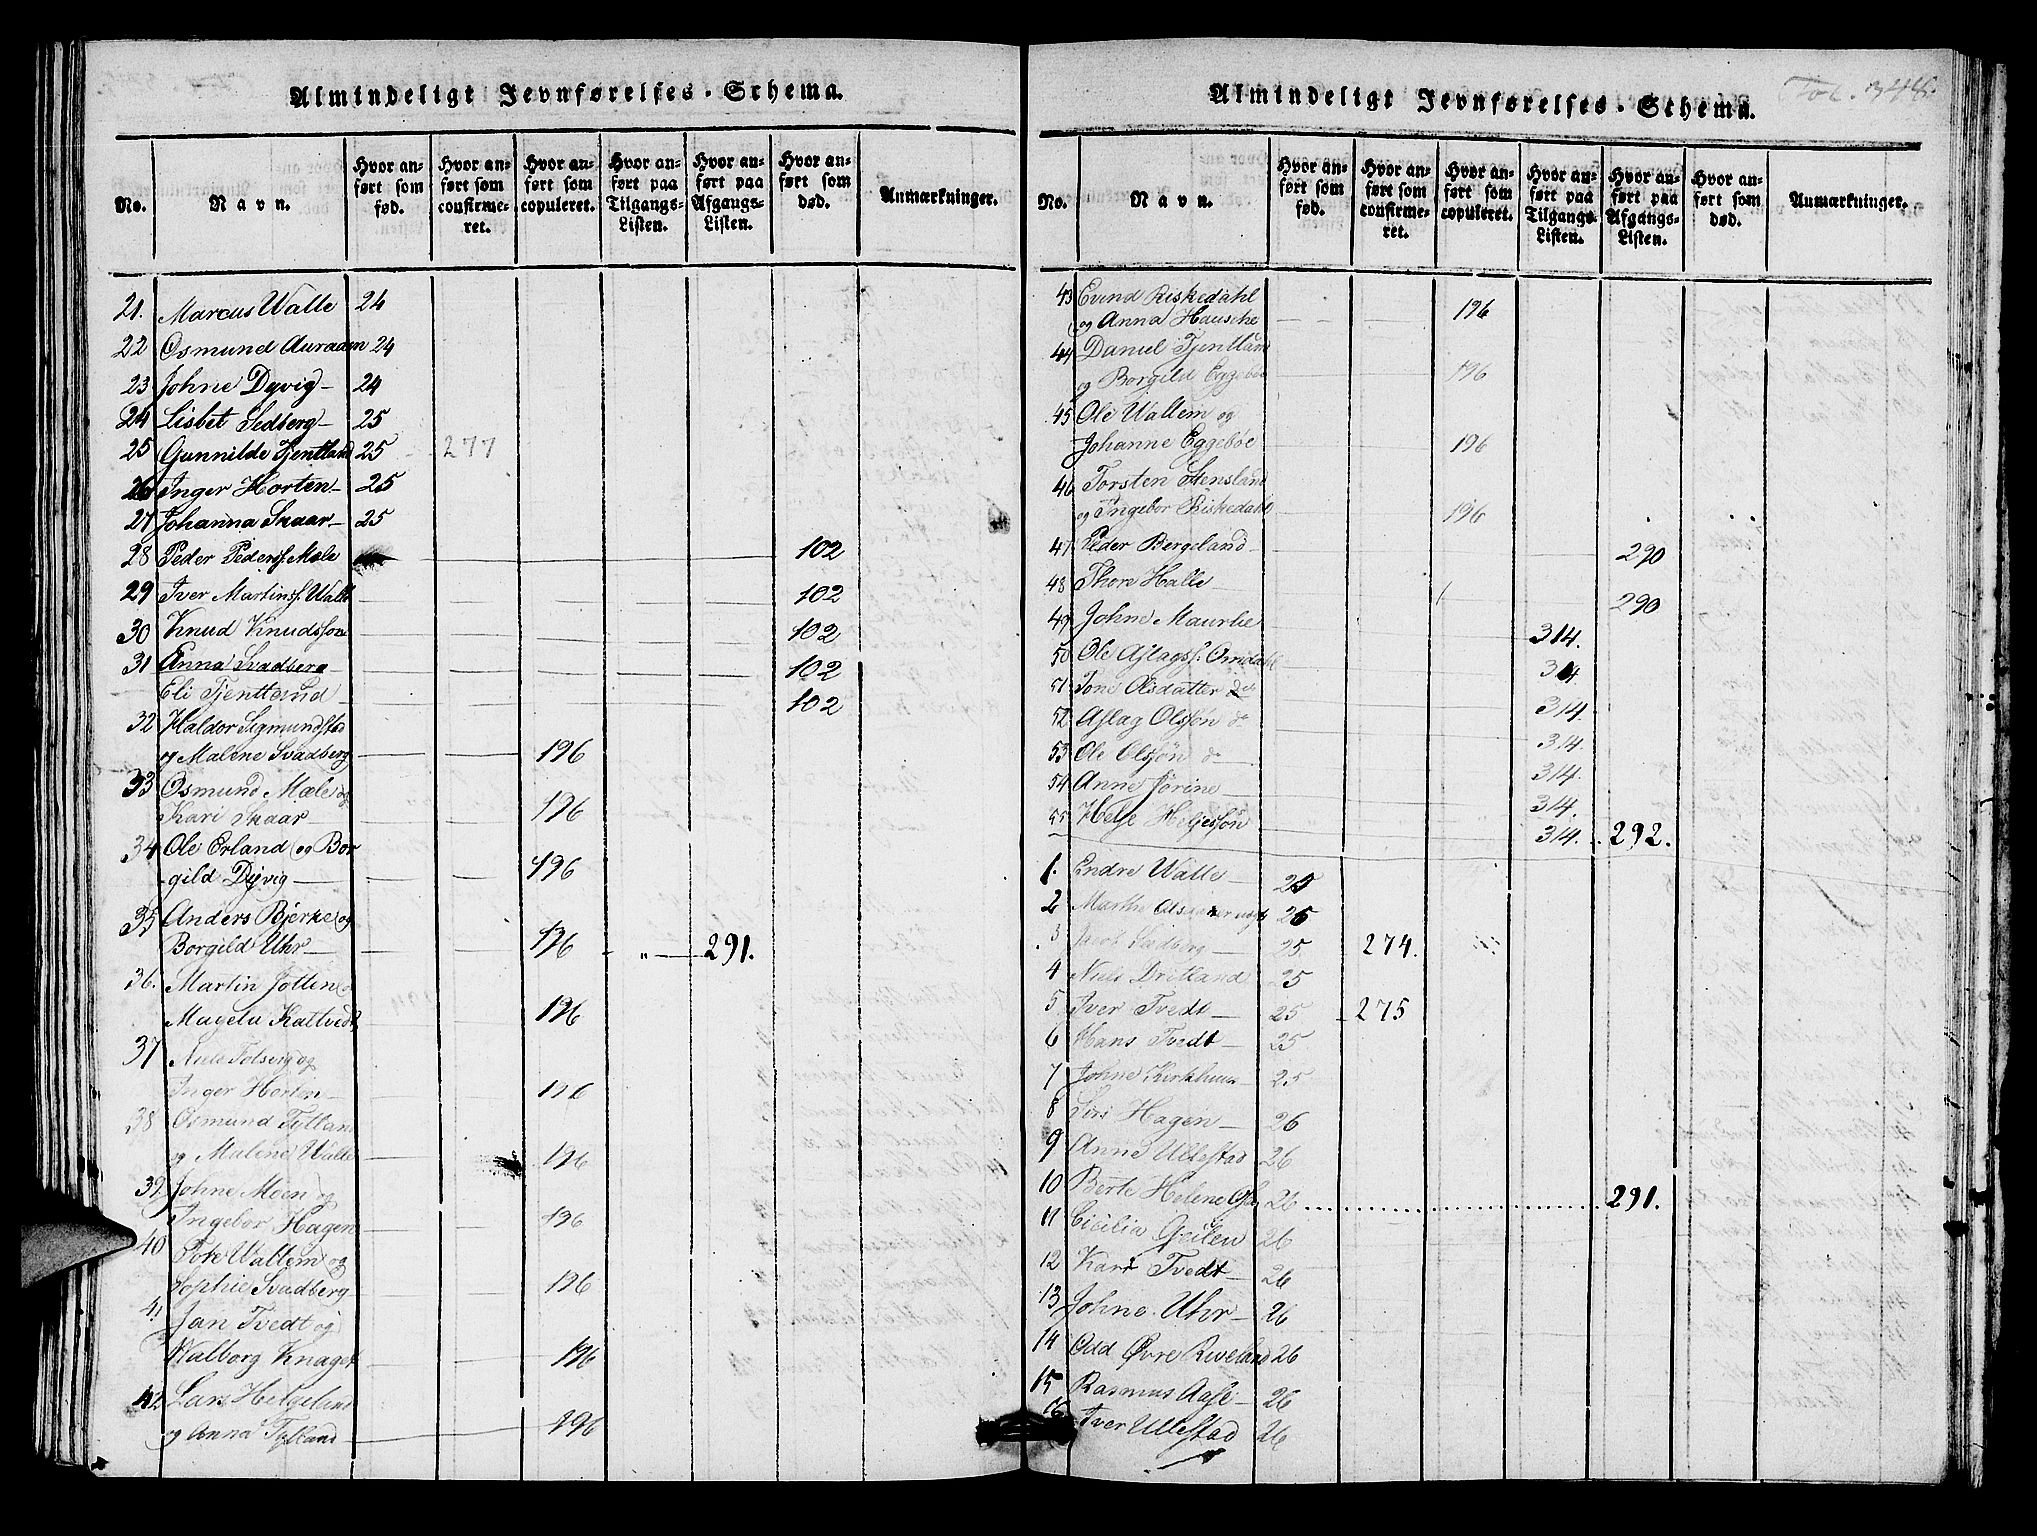 Almindeligt Jevnførelses-Schema.
No. Navn. Hvor anført som fød. Hvor anført som confirmeret. Hvor anført som copuleret. Hvor anført paa Tilgangs-Listen. Hvor anført paa Afgangs-Listen. Hvor anført som død. Anmærkninger.
21. Marcus Walle 24
22 Osmund Auraaen 24
23 Johne Dyvig 24
24 Lisbet Sedberg 25
25 Gunnilde Tjentland 25 277
26 Inger Horten 25
27 Johanna Skaar 25
28 Peder Pederss. Mæle 102
29 Iver Martinss. Walle 102
30 Knud Knudssøn 102
31 Anna Svadberg 102
Eli Tjentl 102
32 Haldor Sigmundstad
og Malene Svadberg 196
33 Osmund Mæle og
Kari Skaar 196
34 Ole Erland og Bor
gild Dyvig 196
35 Anders Bjerke og
Borgild Uhr 196 " 291.
36. Martin Jotten
Magela Kaltvedt 196
37 Niels og
Inger Horten 196
38 Osmund Tylland
og Malene Walle 196
39 Johne Moen og
Ingebor Hagen 196
40 Tore Wallem og
Sophie Svadberg 196
41 Jan Tvedt og
Walborg Knager 196
42 Lars Helgeland
og Anna Tylland 196
Fol. 348.
Almindeligt Jevnførelses-Schema.
No. Navn. Hvor anført som fød. Hvor anført som confirmeret. Hvor anført som copuleret. Hvor anført paa Tilgangs-Listen. Hvor anført paa Afgangs-Listen. Hvor anført som død. Anmærkninger.
43 Evind Riskedahl
og Anna Hausche 196
44 Daniel Tjentland
og Borgild Eggebøe 196
45 Ole Wallem og
Johanne Eggebøe 196
46 Torsten Stensland
og Ingebor Riskedahl 196
47 Peder Bergeland 290
48 Thore Halle 290
49 Johne Maurlie 314.
50 Ole Aslagss. Omdahl 314
51 Tone Olsdatter do 314
52 Aslag Olssøn do 314.
53 Ole Olssøn do 314.
54 Anne Jorine 314.
55 Helje Heljessøn 314. 292.
1. Endre Walle 25
2 Marthe Olsdatter 25
3 Jacob Svadberg 25 274.
4 Niels Dritland 25
5 Iver Tvedt 25 275
6 Hans Tvedt 25
7 Johne Kirkhuus 25
8 Siri Hagen 26
9 Anne Ullestad 26
10 Berte Helene 26 291.
11 Cicilia Geilen 26
12 Kari Tvedt 26
13 Johne Uhr 26
14 Odd Øvre Riveland 26
15 Rasmus Aase 26
16 Iver Ullestad 26